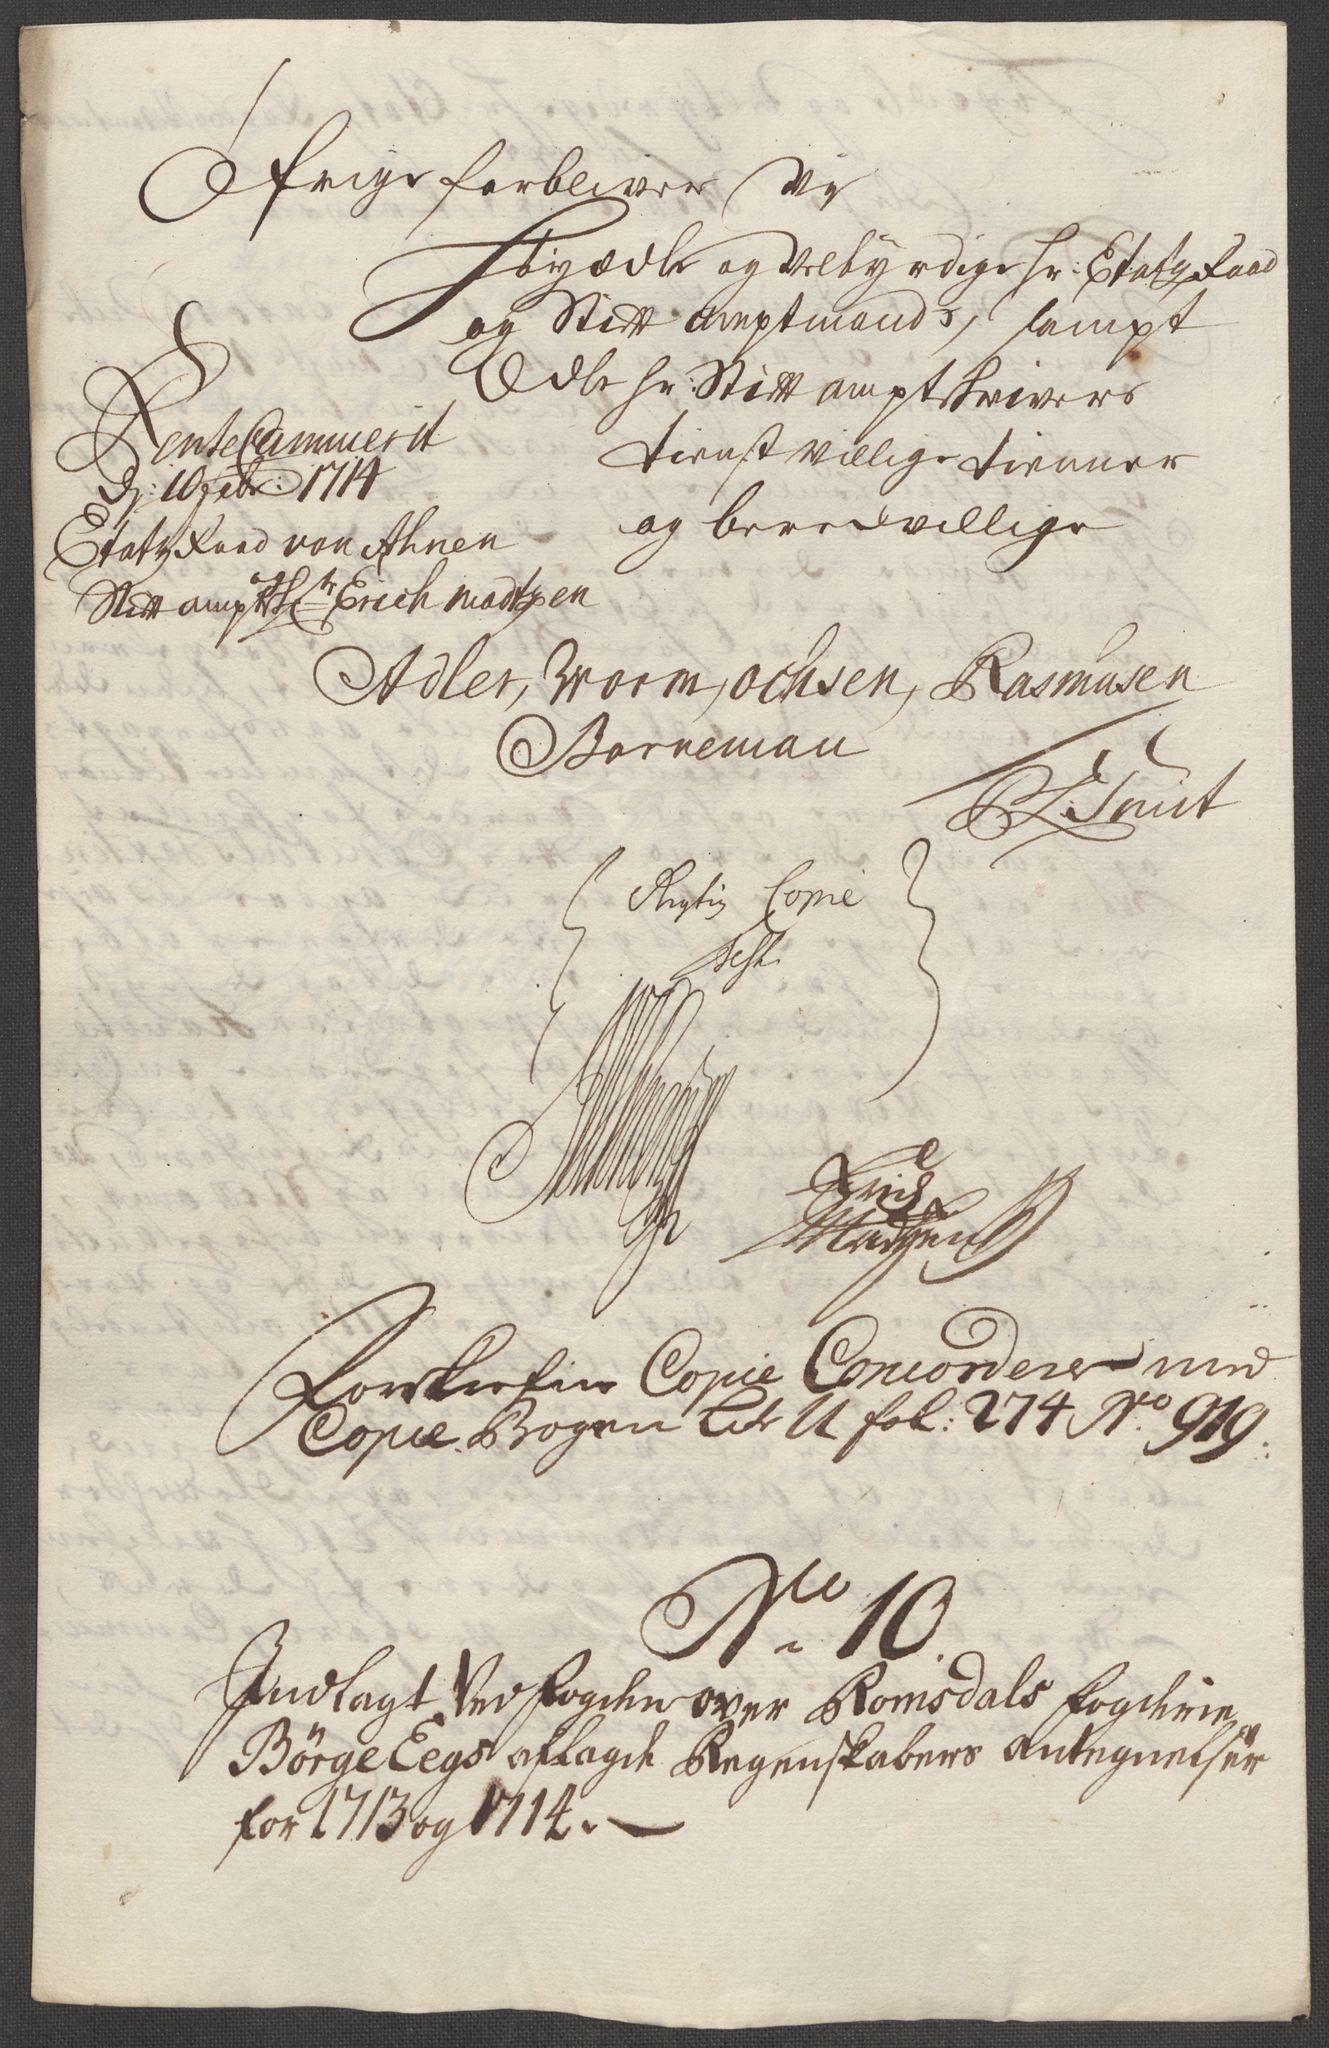 Øfrige forbliver Vy
Høyædle og Velbyrdige hr: Etatz Raad
og Stiftamptmands, sampt
Ædle hr: Stiftamptskrivers
tienstvillige tienner
og beredvillige
Rente Cammerit
d: 10 febr: 1714
Etatz Raad von Ahnen
Stiftampt Erich Madtzen
Adler, Worm, Ochsen, Rasmusen
Borneman
Smit
Rigtig Copie
Test.
Erich
Madtzen
Copie Concorderer med
Copie Bogen Litr U fol: 274 No. 919.
No. 10
Indlagt Ved fogden over Romsdals fogderie
Börge Eegs aflagde Regenskabers antegnelser
for 1713 og 1714.